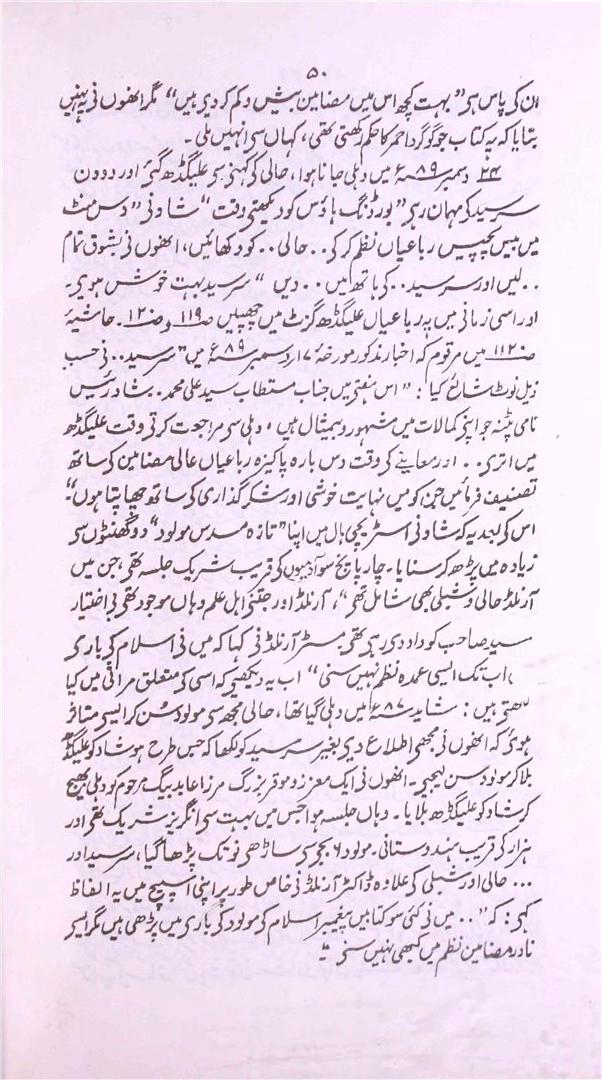 ۵۰
ان کی پاس ہی ”بہت کچھ اس میں مضامین بیش و کم کر دیی ہیں“ مگر انھوں نی یہ نہیں
بتایا کہ یہ کتاب جو گوگرد احمر کا حکم رکھتی تھی، کہاں سی انہیں ملی۔
۲۴ دسمبر ۸۹ء میں دہلی جانا ہوا، حالی کی کہنی سی علیگڈھ گئی اور دو دن
سر سید کی مہمان رہی ”بورڈنگ ہاؤس کو دیکھتی وقت“ شاد نی ”دس منٹ
میں بیس پچیس رباعیاں نظم کر کی .. حالی .. کو دکھائیں، انھوں نی بشوق تمام
.. لیں اور سر سید .. کی ہاتھ میں .. دیں“ سر سید بہت خوش ہویی۔
اور اسی زمانی میں یہ رباعیاں علیگڈھ گزٹ میں چھپیں ص ۱۱۹ و ص ۱۲۰۔ حاشیۂ
ص ۱۱۲۰ میں مرقوم کہ اخبار مذکور مورخۂ ۱۷ دسمبر ۸۹ء میں ”سر سید .. نی حسب
ذیل نوٹ شائع کیا : ”اس ہفتی میں جناب مستطاب سید علی محمد۔ بشاد رئیس
نامی پٹنہ جو اپنی کمالات میں مشہور و بیمثال ہیں، دہلی سی مراجعت کرتی وقت علیگڈھ
میں اتری .. اور معاینے کی وقت دس بارہ پاکیزہ رباعیاں عالی مضامین کی ساتھ
تصنیف فرمائیں جن کو میں نہایت خوشی اور شکر گذاری کی ساتھ چھاپتا ہوں“۔
اس کی بعد یہ کہ شاد نی اسٹریچی ہال میں اپنا ”تازہ مسدس مولود“ دو گھنٹوں سی
زیادہ میں پڑھ کر سنایا۔ چار پانچ سو آدمیوں کی قریب شریک جلسہ تھی، جن میں
آرنلڈ حالی و شبلی بھی شامل تھی“، آرنلڈ اور جتنی اہل علم وہاں موجود تھی بی اختیار
سید صاحب کو داد دی رہی تھی۔ مسٹر آرنلڈ نی کہا کہ میں نی اسلام کی باری
،اب تک ایسی عمدہ نظم نہیں سنی“ اب یہ دیکھیی کہ اسی کی متعلق مراثی میں کیا
لکھتی ہیں : شاید ۸۷ء میں دہلی گیا تھا، حالی مجھ سی مولود سن کر ایسی متاثر
ہوئی کہ انھوں نی مجھی اطلاع دیی بغیر سر سید کو لکھا کہ جس طرح ہو شاد کو علیگڈھ
بلا کر مولود سن لیجیی۔ انھوں نی ایک معزز و موقر بزرگ مرزا عابد بیگ مرحوم کو دہلی بھیج
کر شاد کو علیگڈھ بلایا۔ وہاں جلسہ ہوا جس میں بہت سی انگریز شریک تھی اور
ہزار کی قریب ہندوستانی۔ مولود ۶ بجی سی ساڑھی نو تک پڑھا گیا، سر سید اور
... حالی اور شبلی کی علاوہ ڈاکٹر آرنلڈ نی خاص طور پر اپنی اسپیچ میں یہ الفاظ
کہی : کہ ”.. میں نی کئی سو کتابیں پیغمبر اسلام کی مولود کی باری میں پڑھی ہیں مگر ایسی
نادر مضامین نظم میں کبھی نہیں سنی“